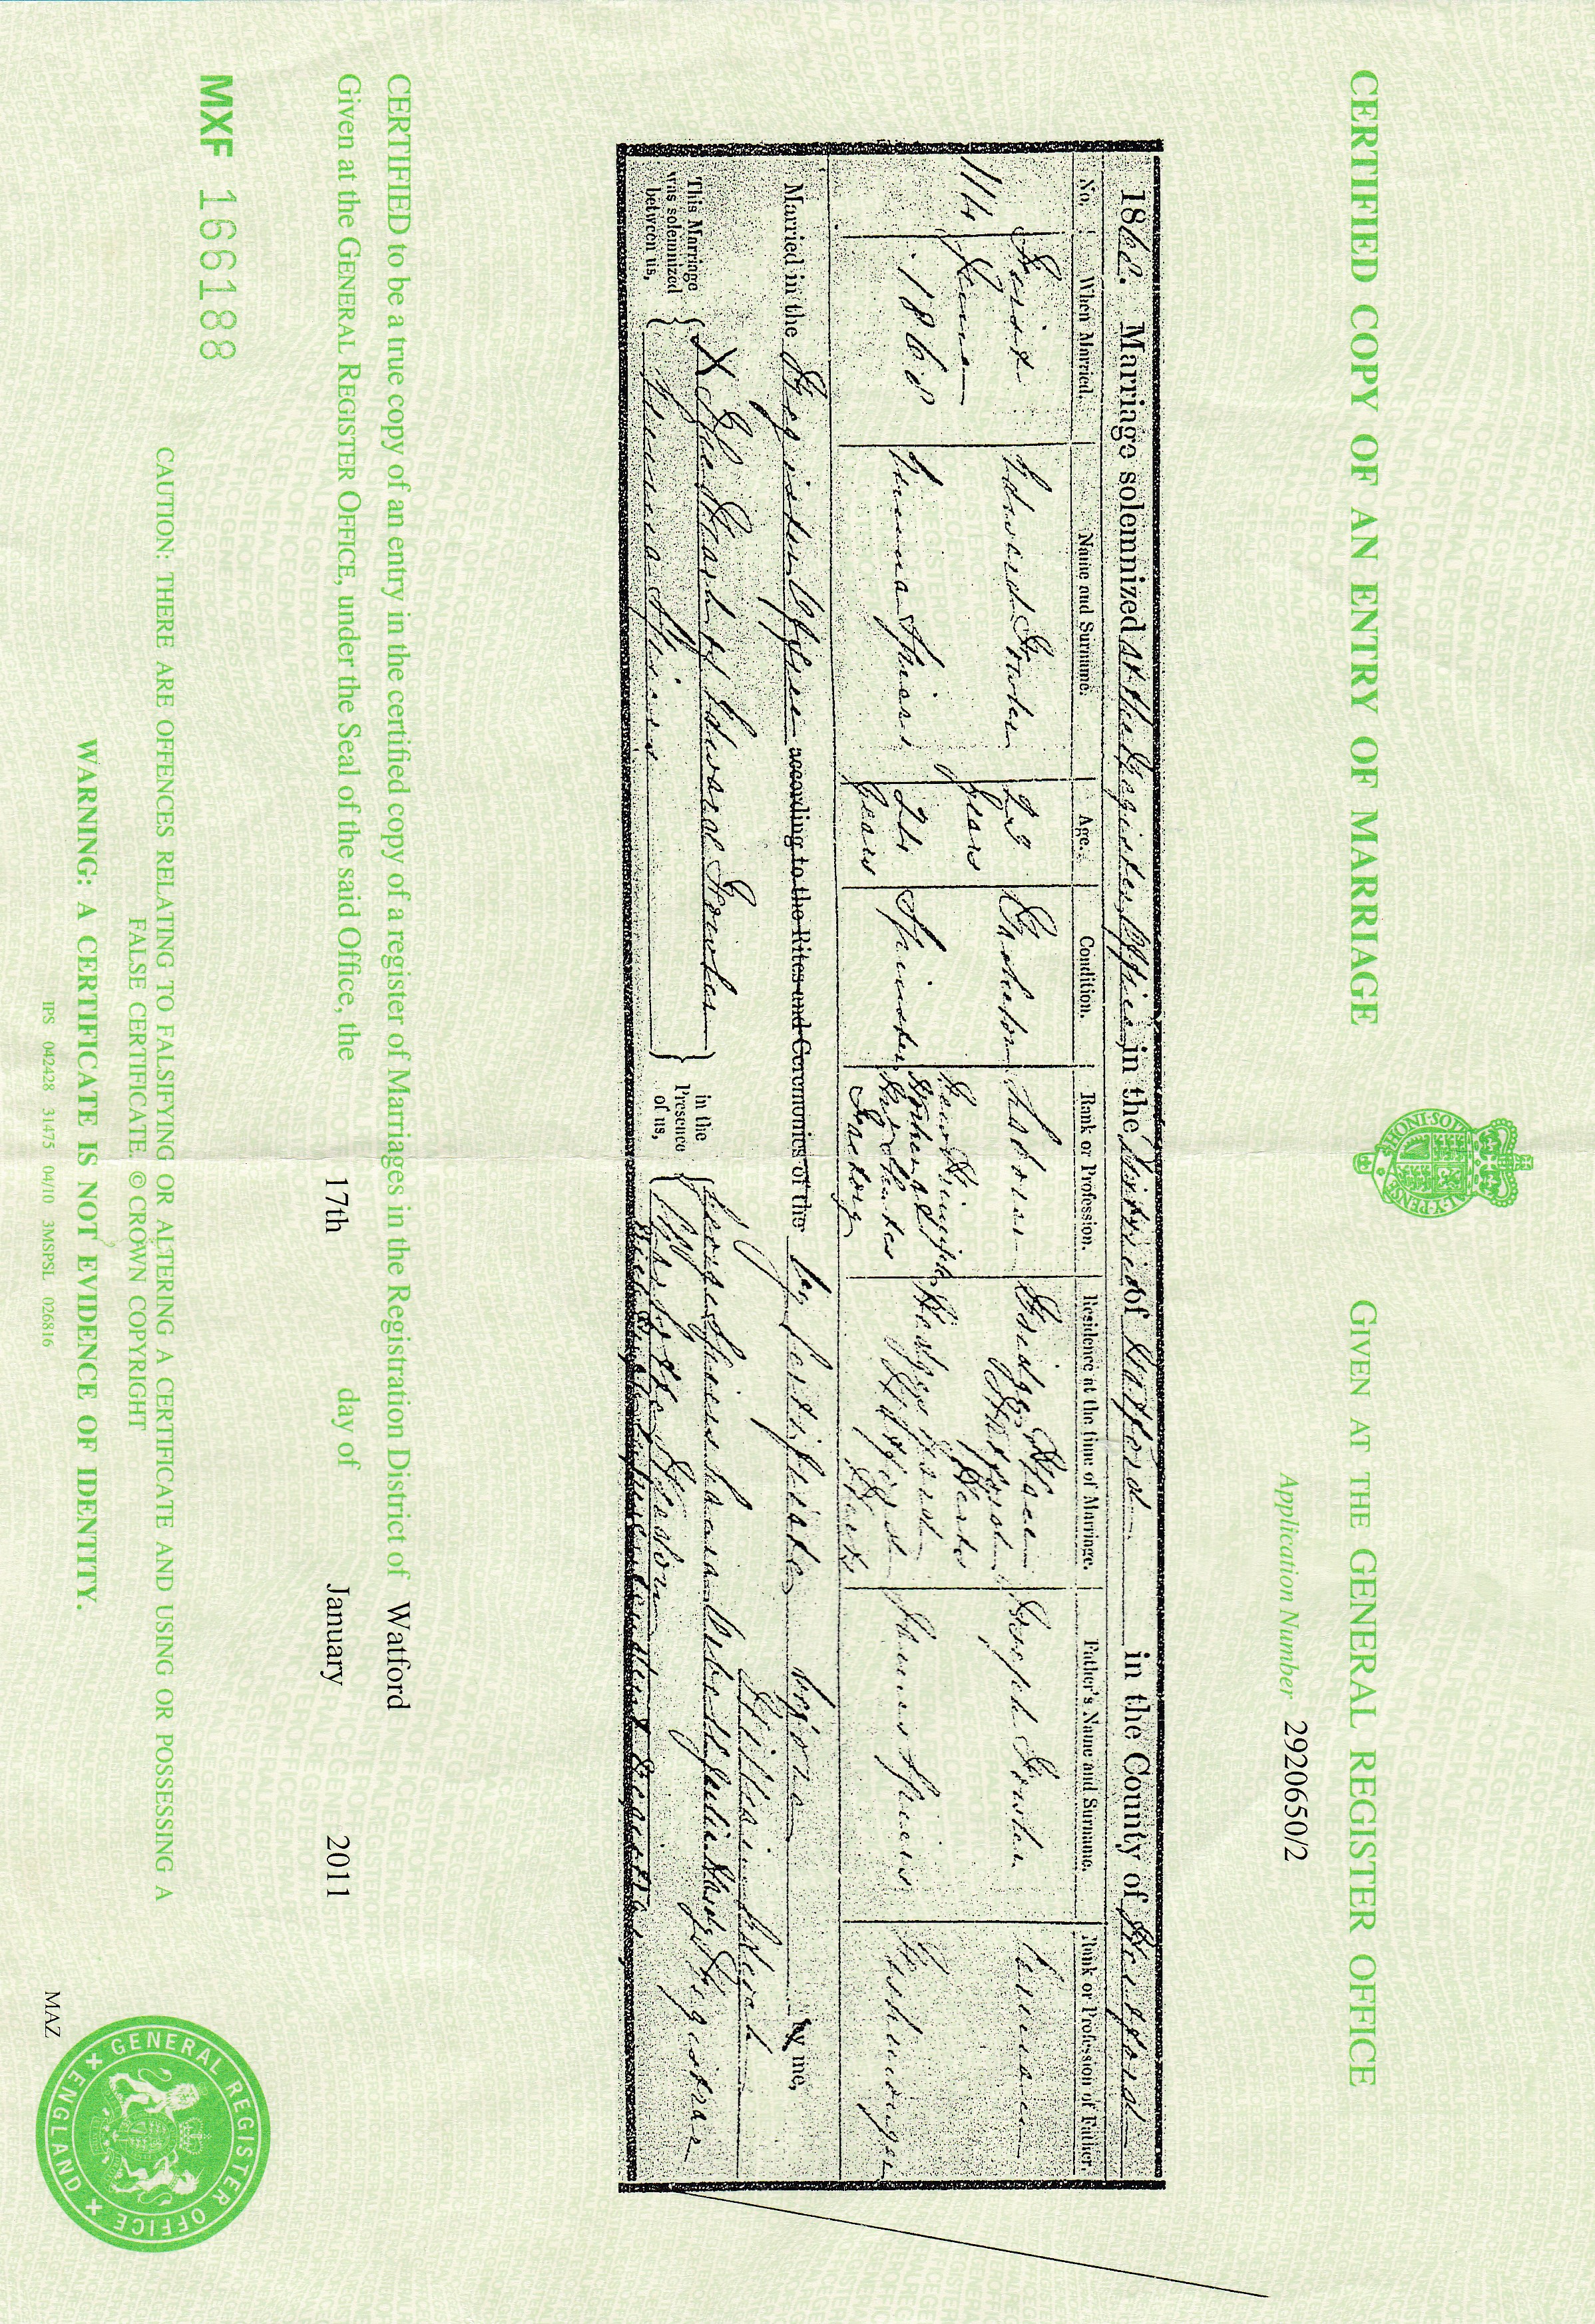 HONI·SOIT·Q AL·Y·PENSE
CERTIFIED COPY OF AN ENTRY OF MARRIAGE
GIVEN AT THE GENERAL REGISTER OFFICE
Application Number 2920650/2
1868. Marriage solemnized at the Register Office in the District of Watford in the County of Hertford
No. When Married. Name and Surname. Age. Condition. Rank or Profession. Residence at the time of Marriage. Father's Name and Surname. Rank or Profession of Father.
First Edward Fowler 23 Bachelor Laborer Bridge Place Joseph Fowler
Watford
114 June Years Herts
Hedges Yard
1868 Emma Spiers 24 Spinster Worker at Watford James Spiers Fishmonger
Years Factory Herts
Married in the Register Office according to the Rites and Ceremonies of the by Certificate before by me,
William
This Marriage was solemnized between us, X The Mark of Edward Fowler in the Presence of us, George Spiers Julia Hardy Registrar
Emma Spiers Charlotte
Superintendent Registrar
CERTIFIED to be a true copy of an entry in the certified copy of a register of Marriages in the Registration District of Watford
Given at the GENERAL REGISTER OFFICE, under the Seal of the said Office, the 17th day of January 2011
MXF 166188
CAUTION: THERE ARE OFFENCES RELATING TO FALSIFYING OR ALTERING A CERTIFICATE AND USING OR POSSESSING A
FALSE CERTIFICATE. © CROWN COPYRIGHT
WARNING: A CERTIFICATE IS NOT EVIDENCE OF IDENTITY.
IPS 042428 31475 04/10 3MSPSL 026816
MAZ
GENERAL REGISTER OFFICE
ENGLAND